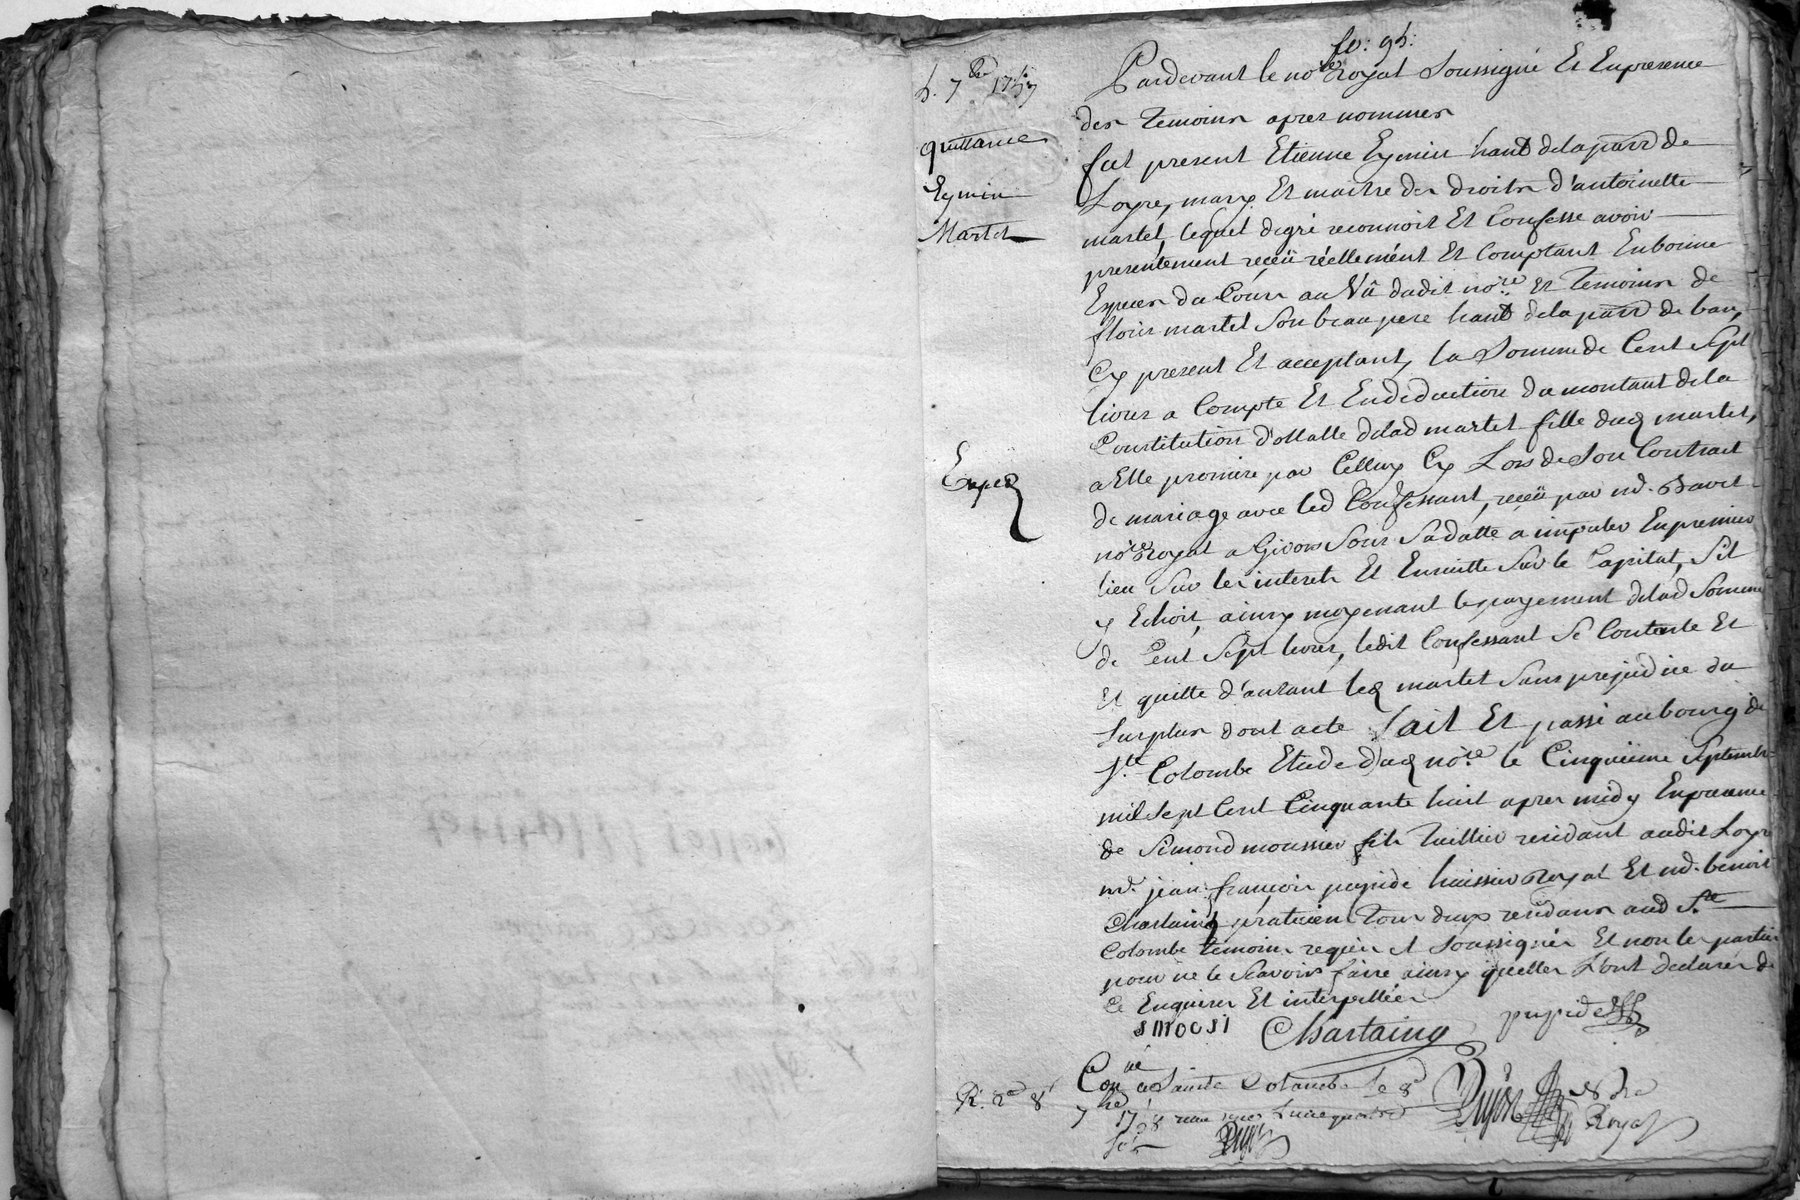 fo: 95:
5. 7bre 1758
quittance
Eymin
Martel
Expedé
Pardevant le nore Royal Soussigné Et Enpresence
des temoins apres nommes
fut present Etienne Eymin hant delaparr de
Loyre, mary Et maitre des droits d'antoinette
martel, lequel degré reconnoit Et Confesse avoir
presentement reçeü réellemént Et Comptant Enbonne
Especes du Cours au Vû dudit nore Et temoins de
floris martel Son beau pere hant delaparr de ban,
Cy present Et acceptant, la Somme de Cent Sept
livres a Compte Et Endeduction du montant dela
Constitution dottalle delad martel fille dud martel,
a Elle promise par Celluy Cy Lors de Son Contrait
de mariage avec led Confessant, reçeü par md.
nore Royal a Givors Sous Sadatte a imputer Enpremier
lieu Sur les interets Et Ensuitte Sur le Capital, Sil
y Echoit, ainsy moyenant lepayement delad Somme
de Cent Sept livres, ledit Confessant Se Contente Et
Et quitte d'autant led martel Sans prejudice du
Surplus dont acte fait Et passé aubourg de
Ste Colombe Etude dud nore le Cinquiême Septembre
mil Sept Cent Cinquante huit apres midy Enpresence
de Simond moussier fils tuillier residant audit Loyre
md. jean françois pupide huissier Royal Et md. benoit
Chartaing praticien tous deux residans aud Ste
Colombe temoins requis Et Soussignés Et non les parties
pour ne le Scavoir faire ainsy quelles L'ont declarés de
Ce Enquises Et interpellées
Chartaing pupide
R. 2e 8
Conné aSainte Colombe le 8e
7bre 1758 reçu
Royal